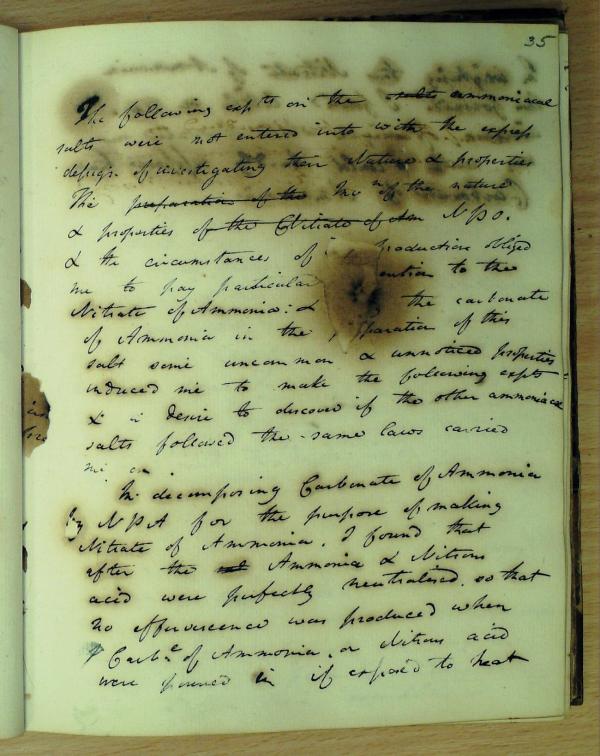 35
The following expts on the salts ammoniacal
salts were not entered into with the express
design of investigating their Nature & properties
The preparation of the Inv^n of the nature
& properties of the Nitrate of Am NPO.
& the circumstances of production obliged
me to pay particular to the
Nitrate of Ammonia: & the carbonate
of Ammonia in the of this
salt some uncommon & unnoticed properties
induced me to make the following expts
& a desire to discover if the other ammoniacal
salts followed the same laws carried
me on
In decomposing Carbonate of Ammonia
by NPA for the purpose of making
Nitrate of Ammonia. I found that
after the Ammonia & Nitrous
acid were perfectly neutralised. so that
no effervescence was produced when
Carb^te of Ammonia. or Nitrous acid
were poured in if exposed to heat